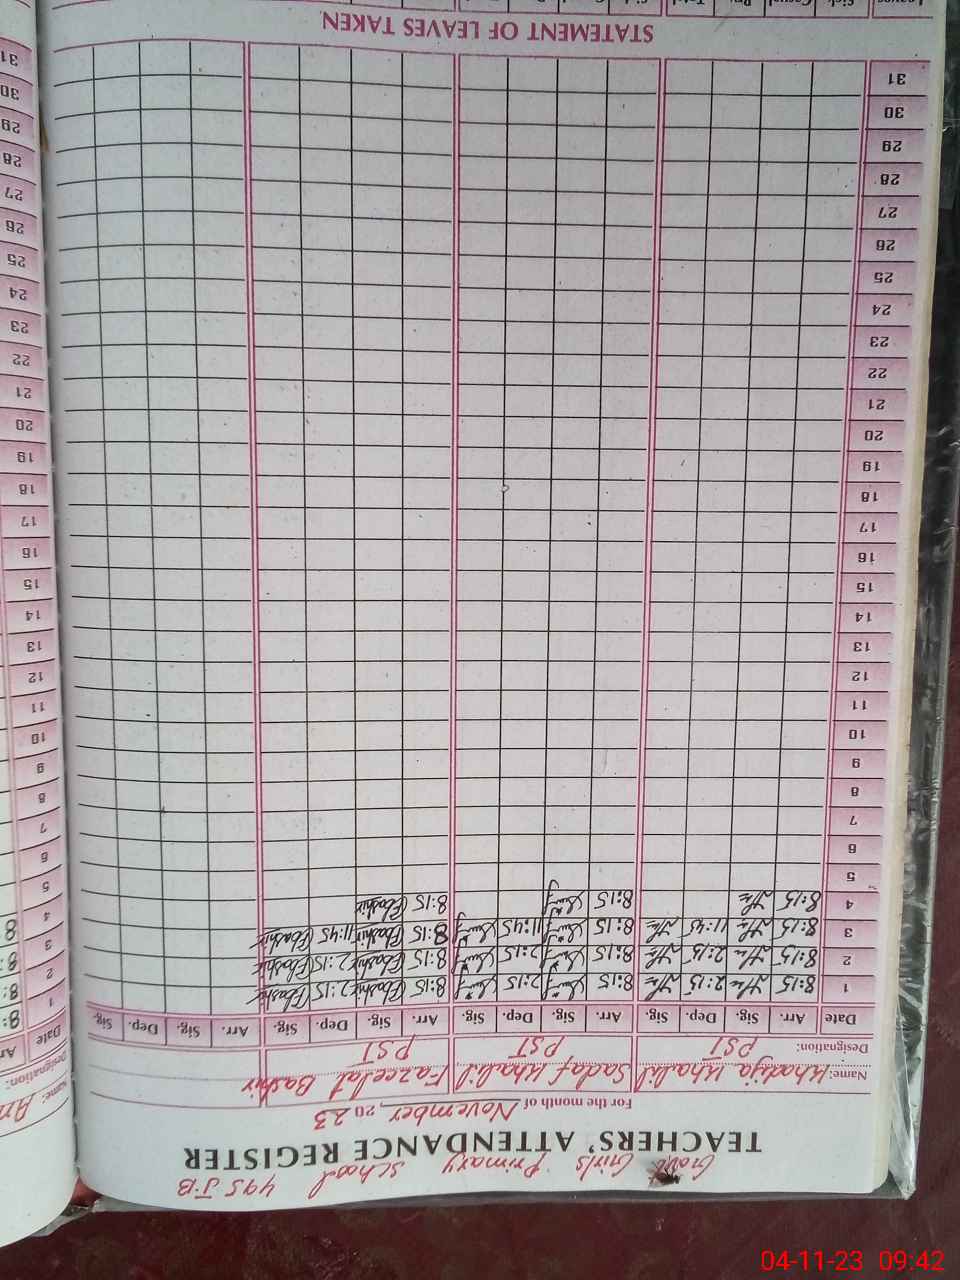 Govt Girls Primary School 495 J.B
TEACHERS' ATTENDANCE REGISTER
For the month of November, 2023
Name: Khadija Khalil Sadaf Khalil Fazeelat Bashir
Designation: PST PST PST
Date Arr. Sig. Dep. Sig. Arr. Sig. Dep. Sig. Arr. Sig. Dep. Sig. Arr. Sig. Dep. Sig.
1 8:15 2:15 8:15 2:15 8:15 Fbashir 2:15 Fbashir
2 8:15 2:15 8:15 2:15 8:15 Fbashir 2:15 Fbashir
3 8:15 11:45 8:15 11:45 8:15 Fbashir 11:45 Fbashir
4 8:15 8:15 8:15 Fbashir
5
6
7
8
9
10
11
12
13
14
15
16
17
18
19
20
21
22
23
24
25
26
27
28
29
30
31
STATEMENT OF LEAVES TAKEN
Leaves Sick Casual Total
Name:
Designation:
Date
1 8:
2 8:
3 8:
4 8
5
6
7
8
9
10
11
12
13
14
15
16
17
18
19
20
21
22
23
24
25
26
27
28
29
30
31
04-11-23 09:42